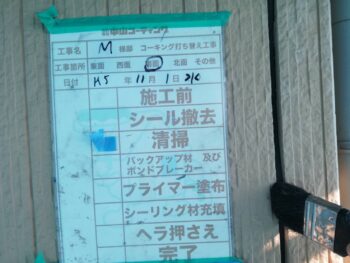 コーティング
工事名 M 様邸 コーキング打ち替え工事
工事箇所 東面 西面 南面 北面 その他
日付 H5 年 11 月 1 日
施工前
シール撤去
清掃
バックアップ材 及び
ボンドブレーカー
プライマー塗布
シーリング材充填
ヘラ押さえ
完了